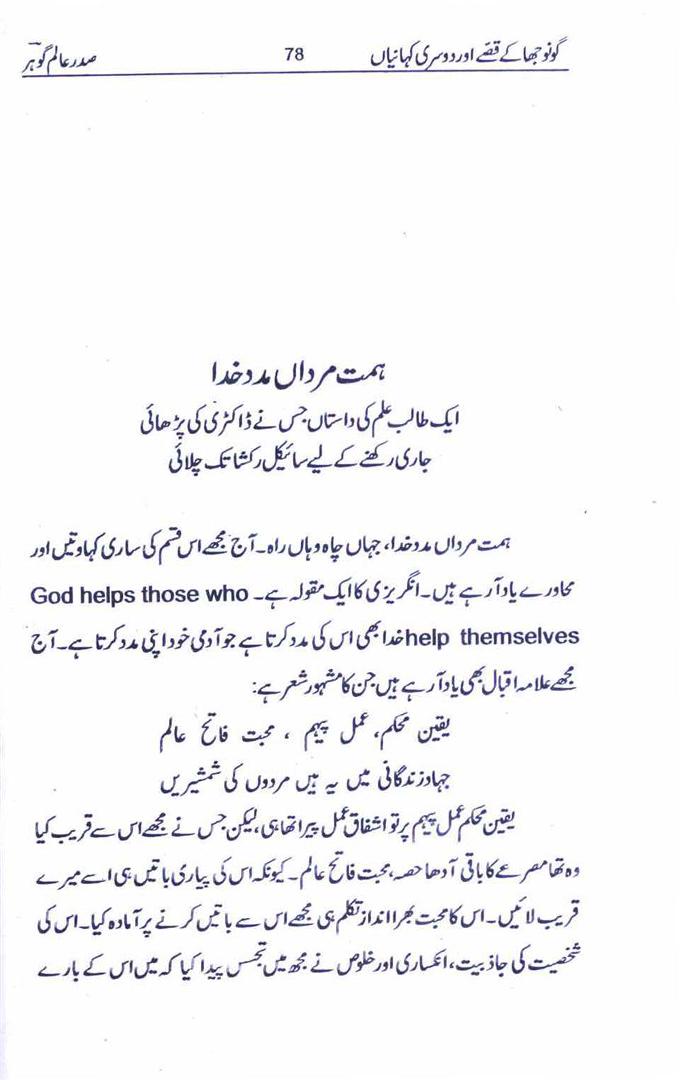 گونو جھا کے قصّے اور دوسری کہانیاں 78 صدر عالم گوہر
ہمت مرداں مدد خدا
ایک طالب علم کی داستاں جس نے ڈاکٹری کی پڑھائی
جاری رکھنے کے لیے سائیکل رکشا تک چلائی
ہمت مرداں مدد خدا، جہاں چاہ وہاں راہ۔ آج مجھے اس قسم کی ساری کہاوتیں اور
محاورے یاد آرہے ہیں۔ انگریزی کا ایک مقولہ ہے۔ God helps those who
help themselves خدا بھی اس کی مدد کرتا ہے جو آدمی خود اپنی مدد کرتا ہے۔ آج
مجھے علامہ اقبال بھی یاد آرہے ہیں جن کا مشہور شعر ہے:
یقین محکم، عمل پیہم ، محبت فاتح عالم
جہاد زندگانی میں یہ ہیں مردوں کی شمشیریں
یقین محکم عمل پیہم پر تو اشفاق عمل پیرا تھا ہی، لیکن جس نے مجھے اس سے قریب کیا
وہ تھا مصرعے کا باقی آدھا حصہ، محبت فاتح عالم۔ کیونکہ اس کی پیاری باتیں ہی اسے میرے
قریب لائیں۔ اس کا محبت بھرا انداز تکلم ہی مجھے اس سے باتیں کرنے پر آمادہ کیا۔ اس کی
شخصیت کی جاذبیت، انکساری اور خلوص نے مجھ میں تجسس پیدا کیا کہ میں اس کے بارے